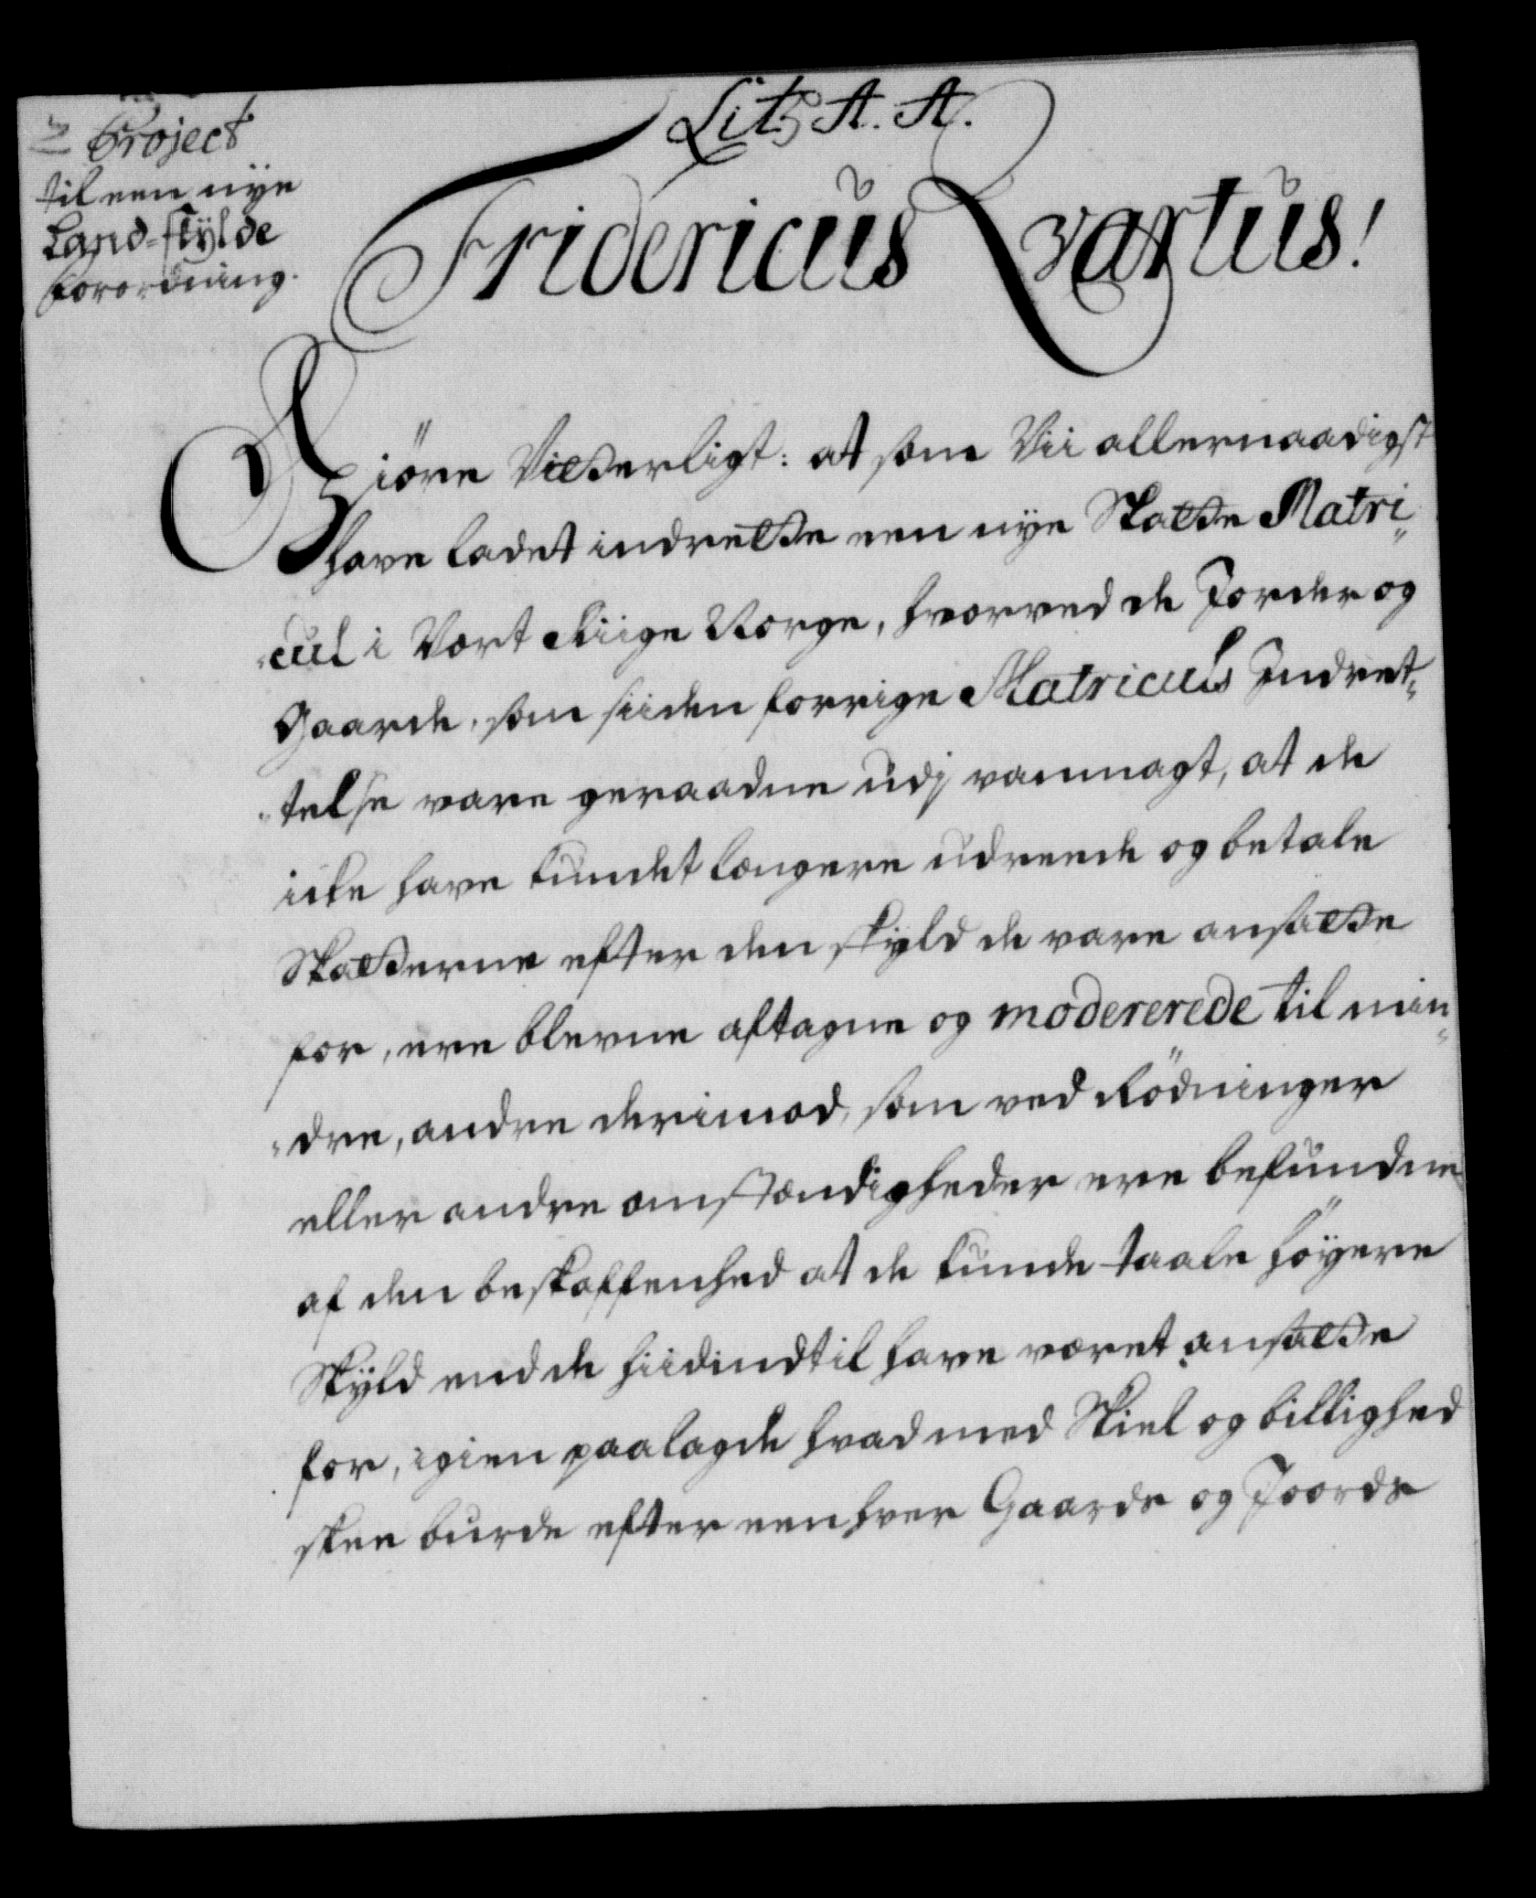 Lit: A. A.
Project
til een nye
Land-skylde
forordning.
Fridericus Qvartus!
Giöre Vitterligt: at som Vii allernaadigst
have ladet indrette een nye Skatte Matri„
„cul i Vort Riige Norge, hvorved de Jorder og
Gaarde, som siiden forrige Matriculs Indret„
„telse vare geraadne udj vanmagt, at de
icke have kundet længere udreede og betale
Skatterne efter den skyld de vare ansatte
for, ere blevne aftagne og modererede til min„
„dre, andre derimod, som ved Rödninger
eller andre omstændigheder ere befundne
af den beskaffenhed at de kunde taale höyere
Skyld end de hiidindtil have været ansatte
for, igien paalagde hvad med Skiel og billighed
skee burde efter een hver Gaards og Joords